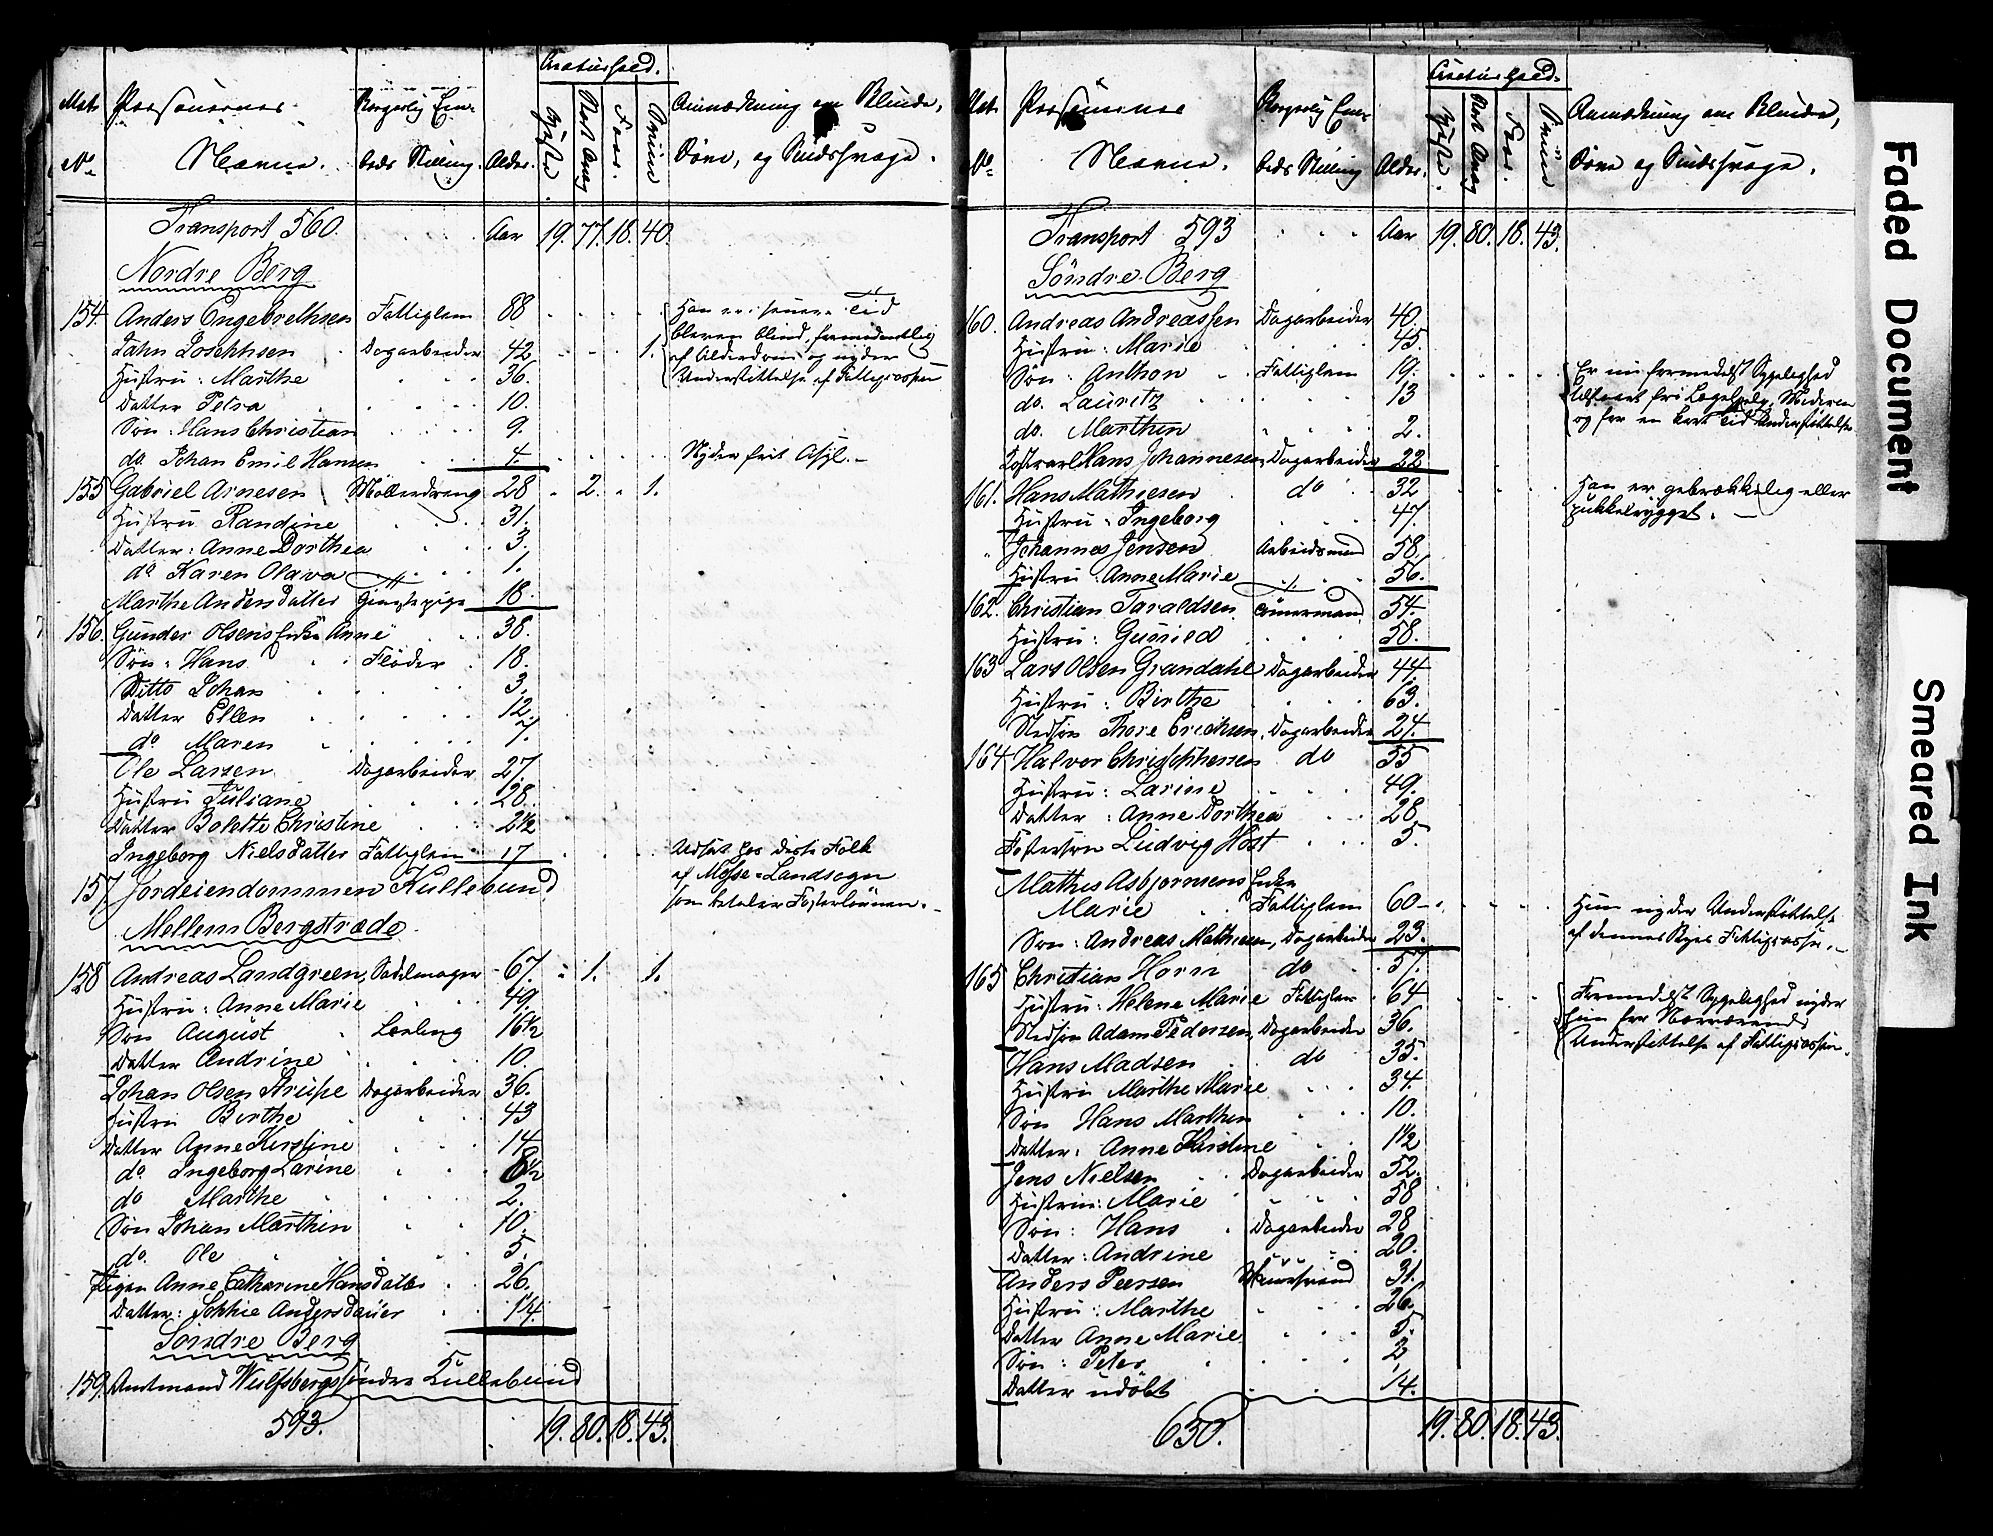 Creaturhold.
Mat. Personernes Borgerlig Em- Heste Stort Qvæg Faar Sviin Anmærkning om Blinde,
No Navne. beds Stilling. Alder. Døve, og Sindssvage.
Transport 560. Aar 19. 77. 18. 40.
Nordre Berg
154. Anders Engebrethsen Fattiglem 88 Han er i senere Tid
John Josephsen Dagarbeider 42 1. bleven blind, fremedentlig
Hustru: Marthe 36. af Alderdom og nyder
Understøttelse af Fattigcassen
Datter Petra 10.
Søn: Hans Christian 9.
do. Johan Emil Hansen 4. Nyder frit Asyl.-
155 Gabriel Arnesen Møllerdreng 28 2. 1.
Hustru Randine 31.
Datter: Anne Dorthea 3.
do Karen Olava 1.
Marthe Andersdatter Tjenestepige 18.
156. Gunder Olsens Enke Anne 38.
Søn: Hans Fløder 18.
Ditto Johan 3.
Datter Ellen 12.
do Maren 7.
Ole Larsen Dagarbeider 27.
Hustru Juliane 28.
Datter Bolette Christine 2½
Ingeborg Nielsdatter Fattiglem 17 Udsat hos disse Folk
af Mosse Landsogn
157. Jordeiendommen Kullebund
som betaler Fosterlønnen.-
Mellem Bergstræde
158 Andreas Landgreen, Sadelmager 67. 1. 1.
Hustru: Anne Marie 49.
Søn August Lærling 16½
Datter Andrine 10.
Johan Olsen Strupe Dagarbeider 36.
Hustru Birthe 43
Datter Anne Kirstine 14
do. Ingeborg Larine 8½
do Marthe 2.
Søn Johan Marthin 10.
do. Ole 5.
Pigen Anne Catharine Hansdatter 26.
Datter: Sophie Andersdatter
Søndre Berg
159. Amtmand Wulfsbergs søndre Kullebund
593. 19. 80. 18. 43.
Creaturhold.
Mat. Personernes Borgerlig Em- Heste Stort Qvæg Faar Sviin Anmærkning om Blinde,
No Navne. beds Stilling Alder. Døve og Sindssvage.
Transport 593 Aar 19. 80. 18. 43.
Søndre Berg
160. Andreas Andreassen Dagarbeider 40.
Hustru: Marie 45.
Søn: Anthon Fattiglem 19. Er nu formedelst Sygelighed
do. Lauritz 13 tilstaaet fri Lægehjelp, Medicin
do. Marthin 2. og for en kort Tid Understøttelse
Kostkarl Hans Johannesen, Dagarbeider 22
161. Hans Mathiesen do 32 Han er gebrækkelig eller
pukkelrygget.-
Hustru: Ingeborg 47.
Johannes Jensen Arbeidsmand 58.
Hustru: Anne Marie 56.
162. Christian Taraldsen Tømermand 54.
Hustru: Gunild 58.
163 Lars Olsen Grandahl Dagarbeider 44
Hustru: Birthe 63.
Stedsøn Thore Erichsen, Dagarbeider 24.
164 Halvor Christophersen do 55
Hustru: Larine 49.
Datter: Anne Dorthea 28.
Fostersøn Ludvig Høst 5.
Mathis Asbjørnsens Enke
Marie Fattiglem 60 Hun nyder Understøttelse
af dennes Byes Fattigcasse.-
Søn: Andreas Mathiesen, Dagarbeider 23.
165 Christian Horn do 57.
Hustru: Helene Marie Fattiglem 64 Formedelst Sygelighed nyder
Stedsøn Adam Pedersen, Dagarbeider 36. hun for Nærværende
Understøttelse af Fattigcassen.
Hans Madsen do 35.
Hustru Marthe Marie 34.
Søn Hans Marthin 10.
Datter: Anne Kirstine 1½
Jens Nielsen Dagarbeider 52.
Hustru: Marie 58
Søn: Hans Dagarbeider 28
Datter: Andrine 20.
Anders Peersen 31.
Hustru: Marthe 26.
Datter Anne Marie 5.
Søn: Peter 2
Datter udøbt
650. 19. 80. 18. 43.
Faded Document
Smeared Ink